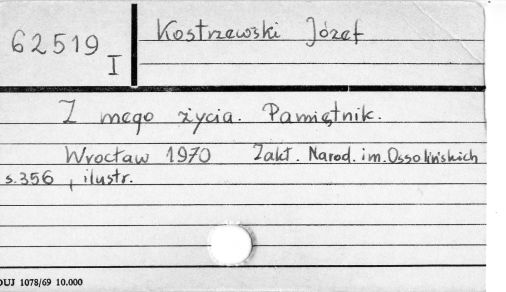 62519 I
Kostrzewski Józef
Z mego życia. Pamiętnik.
Wrocław 1970 Zakł. Narod. im. Ossolińskich
s.356 , ilustr.
DUJ 1078/69 10.000